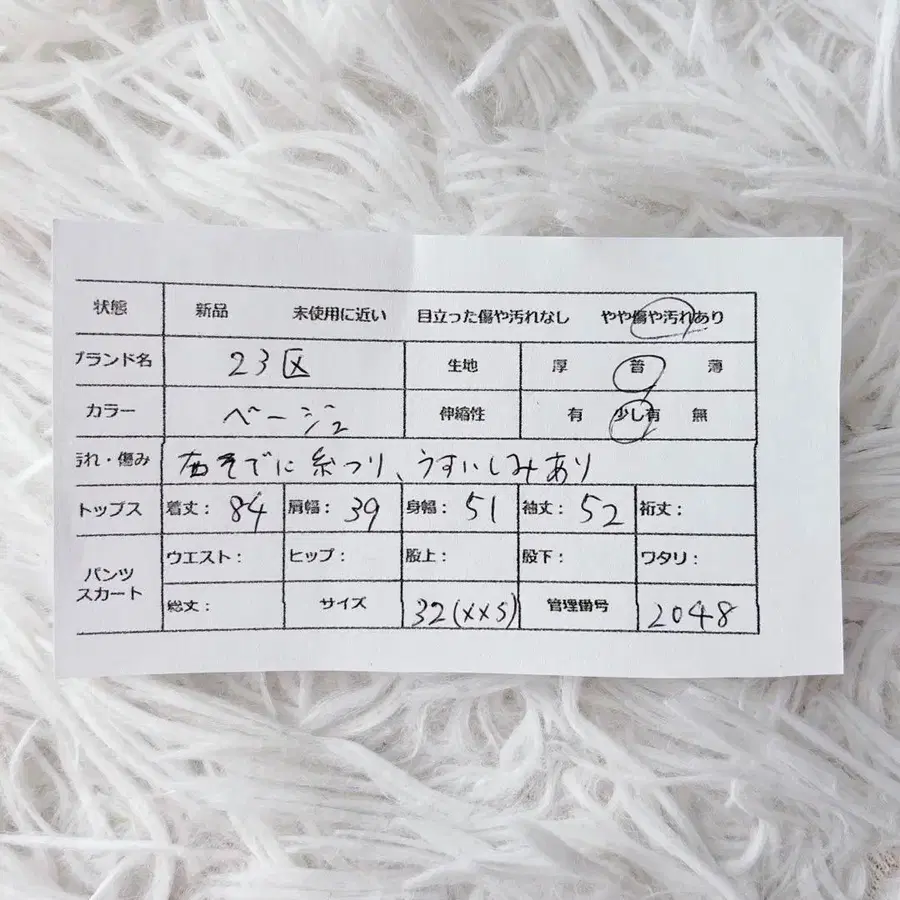 状態 新品 未使用に近い 目立った傷や汚れなし やや傷や汚れあり
ブランド名 23区 生地 厚 普 薄
カラー ベージュ 伸縮性 有 少し有 無
汚れ・傷み 右そでに糸つり、うすいしみあり
トップス 着丈: 84 肩幅: 39 身幅: 51 袖丈: 52 裄丈:
パンツ スカート ウエスト: ヒップ: 股上: 股下: ワタリ:
総丈: サイズ 32(xxs) 管理番号 2048